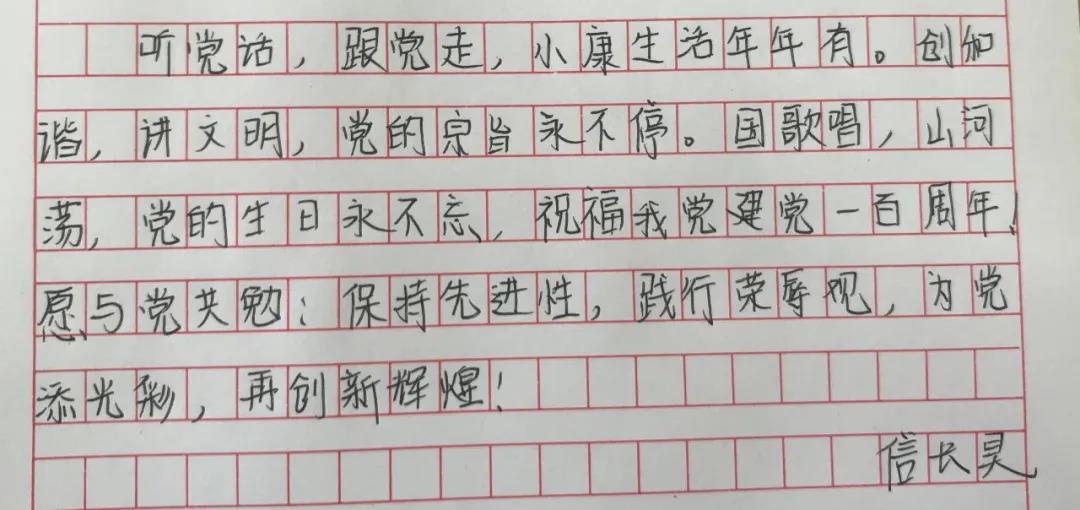 听党话，跟党走，小康生活年年有。创和
谐，讲文明，党的宗旨永不停。国歌唱，山河
荡，党的生日永不忘，祝福我党建党一百周年！
愿与党共勉：保持先进性，践行荣辱观，为党
添光彩，再创新辉煌！
信长昊